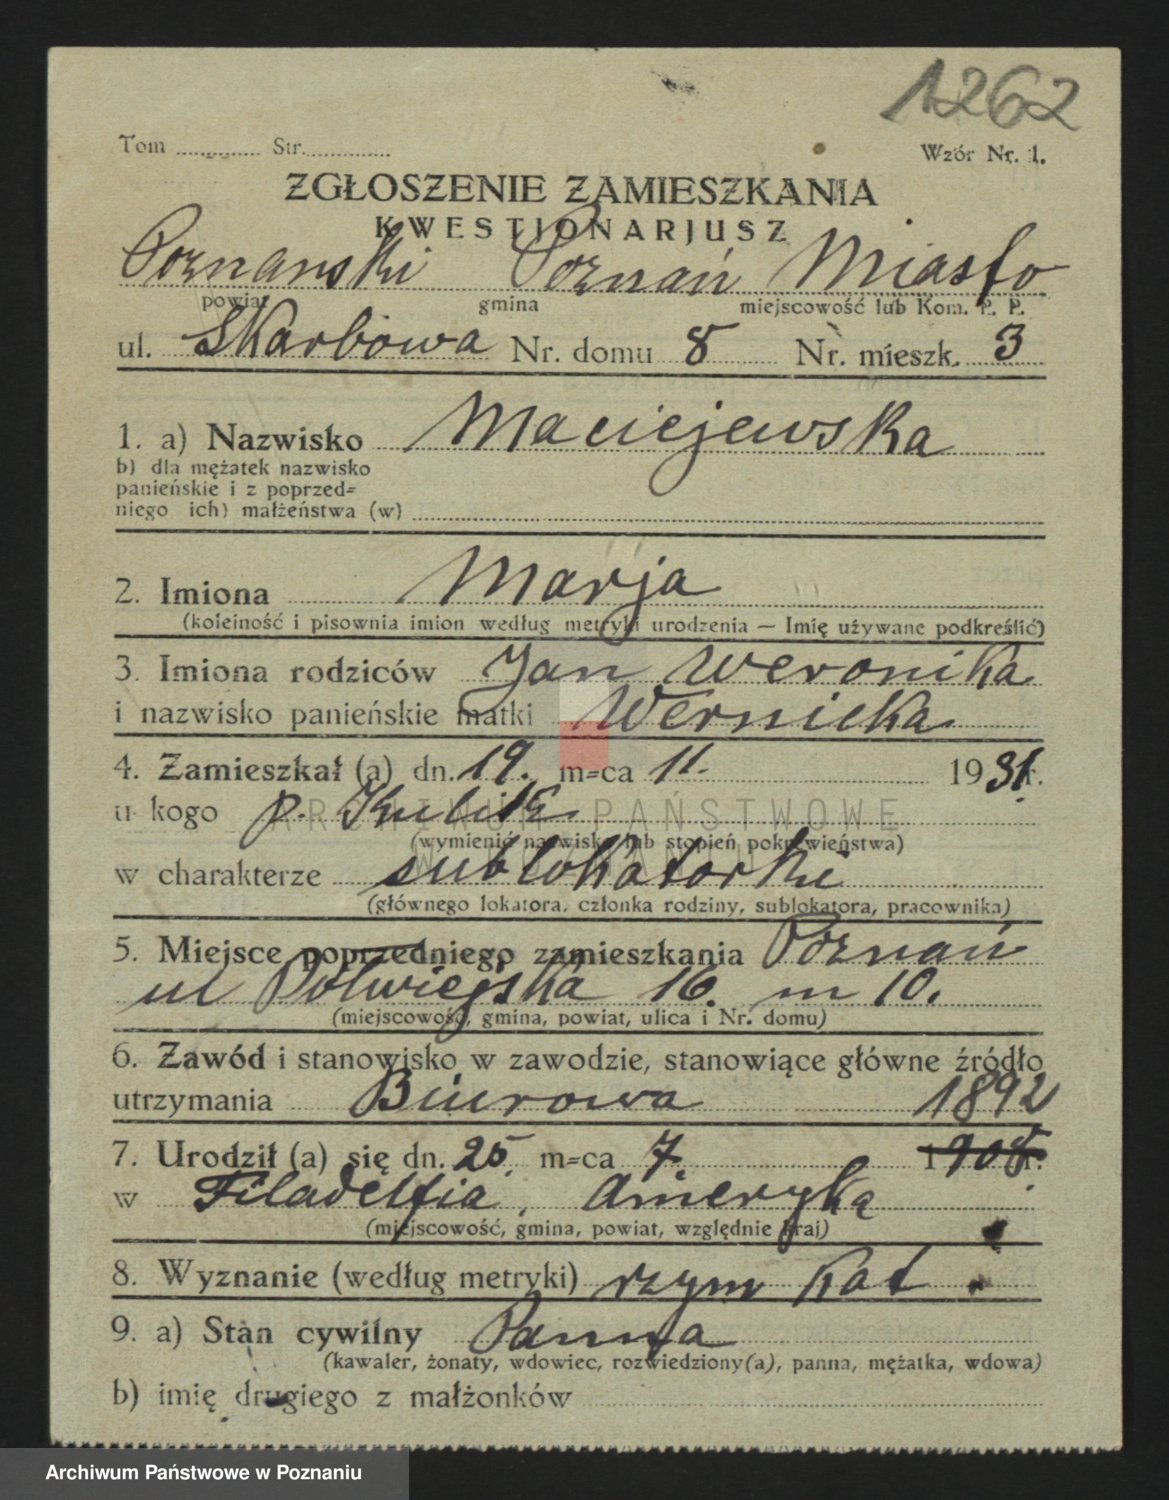 1262
Tom ............ Str. ............
Wzór Nr. 1.
ZGŁOSZENIE ZAMIESZKANIA
KWESTIONARJUSZ
Poznanski Poznań Miasto
powiat gmina miejscowość lub Kom. P. P.
ul. Skarbowa Nr. domu 8 Nr. mieszk. 3
1. a) Nazwisko Maciejewska
b) dla mężatek nazwisko
panieńskie i z poprzed=
niego ich) małżeństwa (w)
2. Imiona Marja
(kolejność i pisownia imion według metryki urodzenia — Imię używane podkreślić)
3. Imiona rodziców Jan Weronika
i nazwisko panieńskie matki Wernicka.
4. Zamieszkał (a) dn. 19. m=ca 11. 1931 r.
u kogo p. Kubik.
(wymienić nazwisko lub stopień pokrewieństwa)
ARCHIWUM PAŃSTWOWE
w charakterze sublokatorki
(głównego lokatora, członka rodziny, sublokatora, pracownika)
5. Miejsce poprzedniego zamieszkania Poznań
ul Półwiejska 16. m 10.
(miejscowość, gmina, powiat, ulica i Nr. domu)
6. Zawód i stanowisko w zawodzie, stanowiące główne źródło
utrzymania Biurowa 1892
7. Urodził (a) się dn. 25 m=ca 7. 1908 r.
w Filadelfia, Ameryką
(miejscowość, gmina, powiat, względnie kraj)
8. Wyznanie (według metryki) rzym Kat
9. a) Stan cywilny Panna
(kawaler, żonaty, wdowiec, rozwiedziony(a), panna, mężatka, wdowa)
b) imię drugiego z małżonków
Archiwum Państwowe w Poznaniu